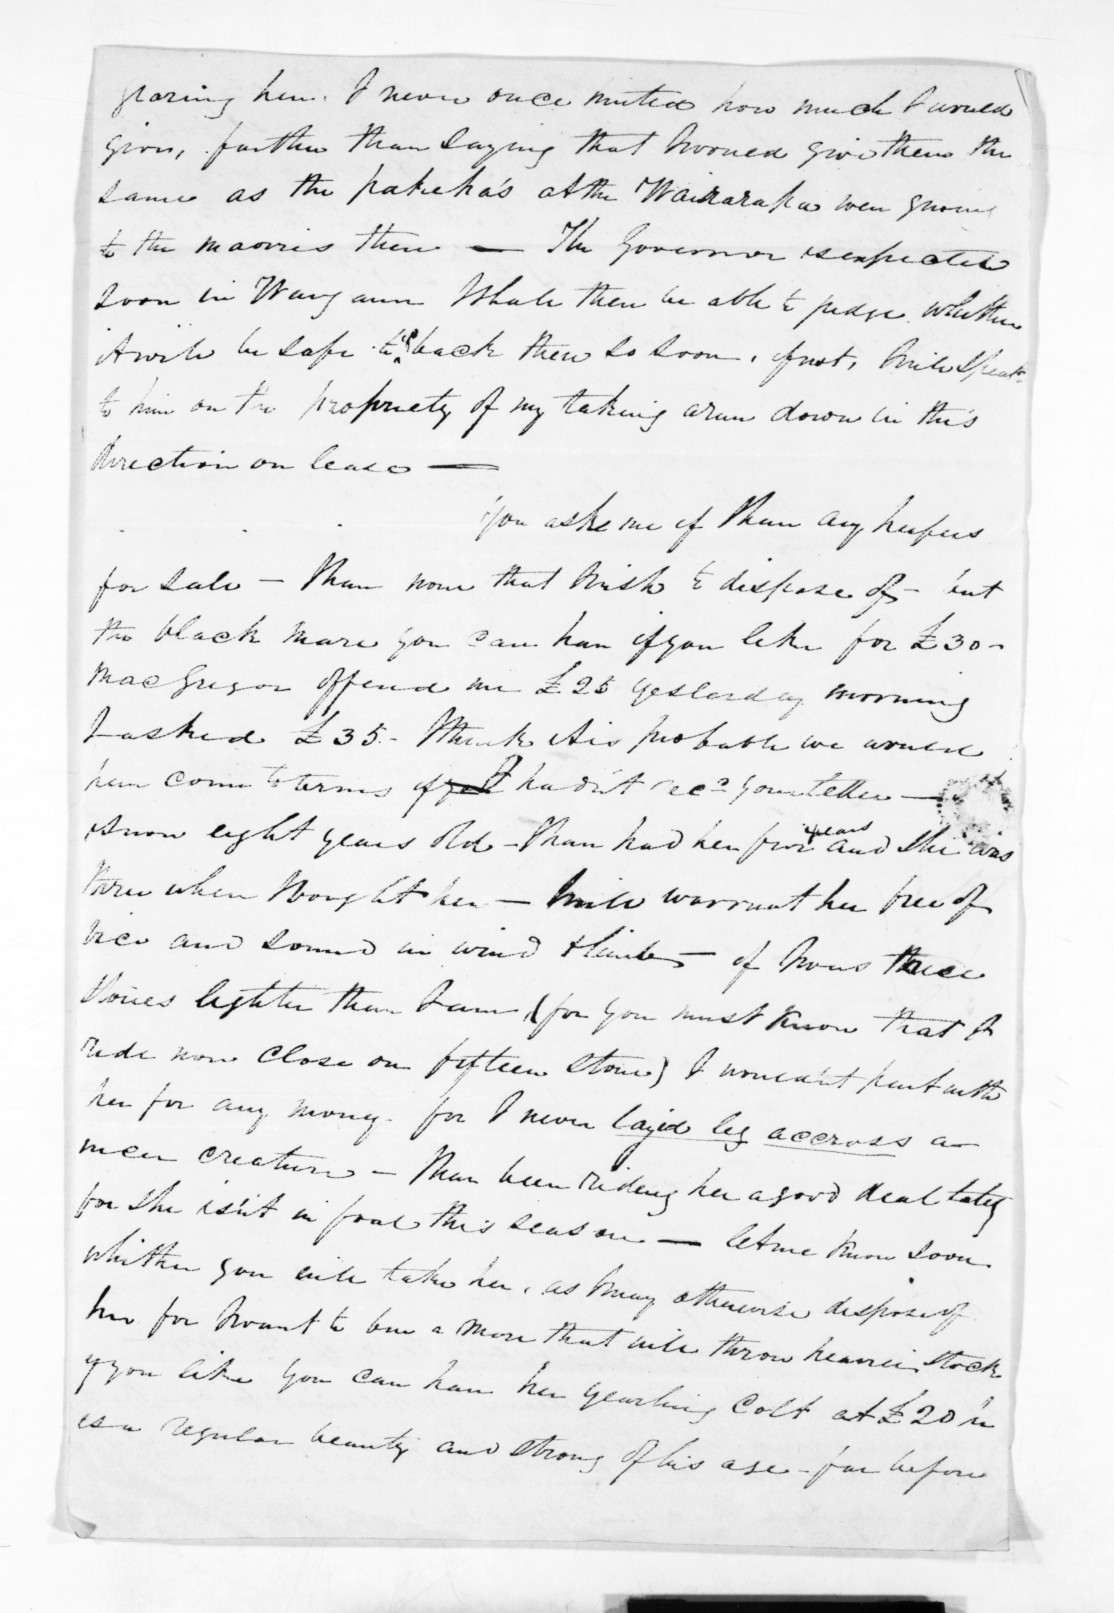 grazing here. I never once hinted how much I would
give, further than saying that I would give them the
same as the pakeha's at the Wairarapa were giving
to the maoris there — The Governor is expected
soon in Wanganui I shall then be able to judge whether
it will be safe to go back there so soon, if not, I will speak
to him on the propriety of my taking a run down in this
direction on lease —
You ask me if I have any heifers
for sale — I have none that I wish to dispose of — but
the black mare you can have if you like for £30 -
MacGregor offered me £25 yesterday morning
I asked £35 - I think it is probable we would
have come to terms if I hadn't recd your letter —
is now eight years old - I have had her five years and she was
three when I bought her — I will warrant her free of
vice and sound in wind & limb — if I was three
stones lighter than I am, (for you must know that I
ride now close on fifteen stone) I wouldn't part with
her for any money. for I never layed leg accross a
nicer creature — I have been riding her a good deal lately
for she isn't in foal this season — let me know soon
whither you will take her, as I may otherwise dispose of
her for I want to buy a mare that will throw heavier stock
if you like you can have her yearling colt at £20 he
is a regular beauty and strong of his age - far before